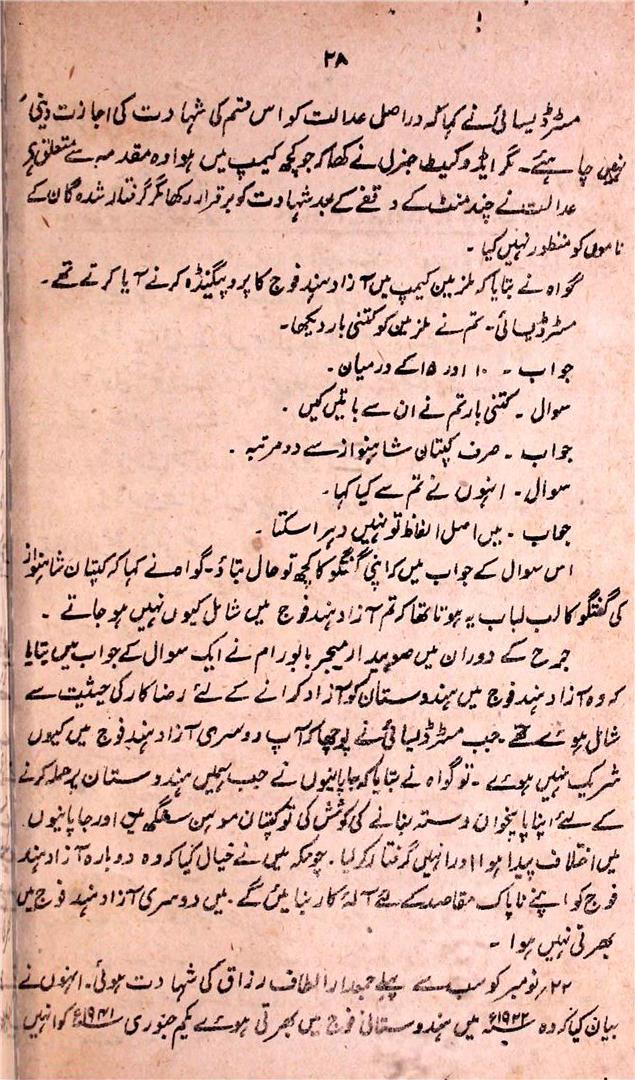 ۲۸
مسٹر ڈیسائی نے کہا کہ دراصل عدالت کو اس قسم کی شہادت کی اجازت دینی
نہیں چاہئے۔ مگر ایڈوکیٹ جنرل نے کہا کہ جو کچھ کیمپ میں ہوا وہ مقدمہ سے متعلق ہے
عدالت نے چند منٹ کے وقفے کے بعد شہادت کو برقرار رکھا مگر گرفتار شدہ گان کے
ناموں کو منظور نہیں کیا۔
گواہ نے بتایا کہ ملزمین کیمپ میں آزاد ہند فوج کا پروپیگنڈہ کرنے آیا کرتے تھے۔
مسٹر ڈیسائی۔ تم نے ملزمین کو کتنی بار دیکھا۔
جواب۔ ۱۰ اور ۱۵ کے درمیان۔
سوال۔ کتنی بار تم نے ان سے باتیں کیں۔
جواب۔ صرف کپتان شاہنواز سے دو مرتبہ۔
سوال۔ انہوں نے تم سے کیا کہا۔
جواب۔ میں اصل الفاظ تو نہیں دہرا سکتا۔
اس سوال کے جواب میں کہ اپنی گفتگو کا کچھ تو حال بتاؤ۔ گواہ نے کہا کہ کپتان شاہنواز
کی گفتگو کا لب لباب یہ ہوتا تھا کہ تم آزاد ہند فوج میں شامل کیوں نہیں ہو جاتے۔
جرح کے دوران میں صوبیدار میجر بابو رام نے ایک سوال کے جواب میں بتایا
کہ وہ آزاد ہند فوج میں ہندوستان کو آزاد کرانے کے لئے رضا کار کی حیثیت سے
شامل ہوئے تھے۔ جب مسٹر ڈیسائی نے پوچھا کہ آپ دوسری آزاد ہند فوج میں کیوں
شریک نہیں ہوئے۔ تو گواہ نے بتایا کہ جاپانیوں نے جب ہمیں ہندوستان پر حملہ کرنے
کے لئے اپنا پانچواں دستہ بنانے کی کوشش کی تو کپتان موہن سنگھ میں اور جاپانیوں
میں اختلاف پیدا ہوا اور انہیں گرفتار کر لیا۔ چونکہ میں نے خیال کیا کہ وہ دوبارہ آزاد ہند
فوج کو اپنے ناپاک مقاصد کے لئے آلہ کار بنائیں گے۔ میں دوسری آزاد ہند فوج میں
بھرتی نہیں ہوا۔
۲۲/نومبر کو سب سے پہلے جمعدار الطاف رزاق کی شہادت ہوئی۔ انہوں نے
بیان کیا کہ وہ ۱۹۲۲ء میں ہندوستانی فوج میں بھرتی ہوئے یکم جنوری ۱۹۴۱ء کو انہیں